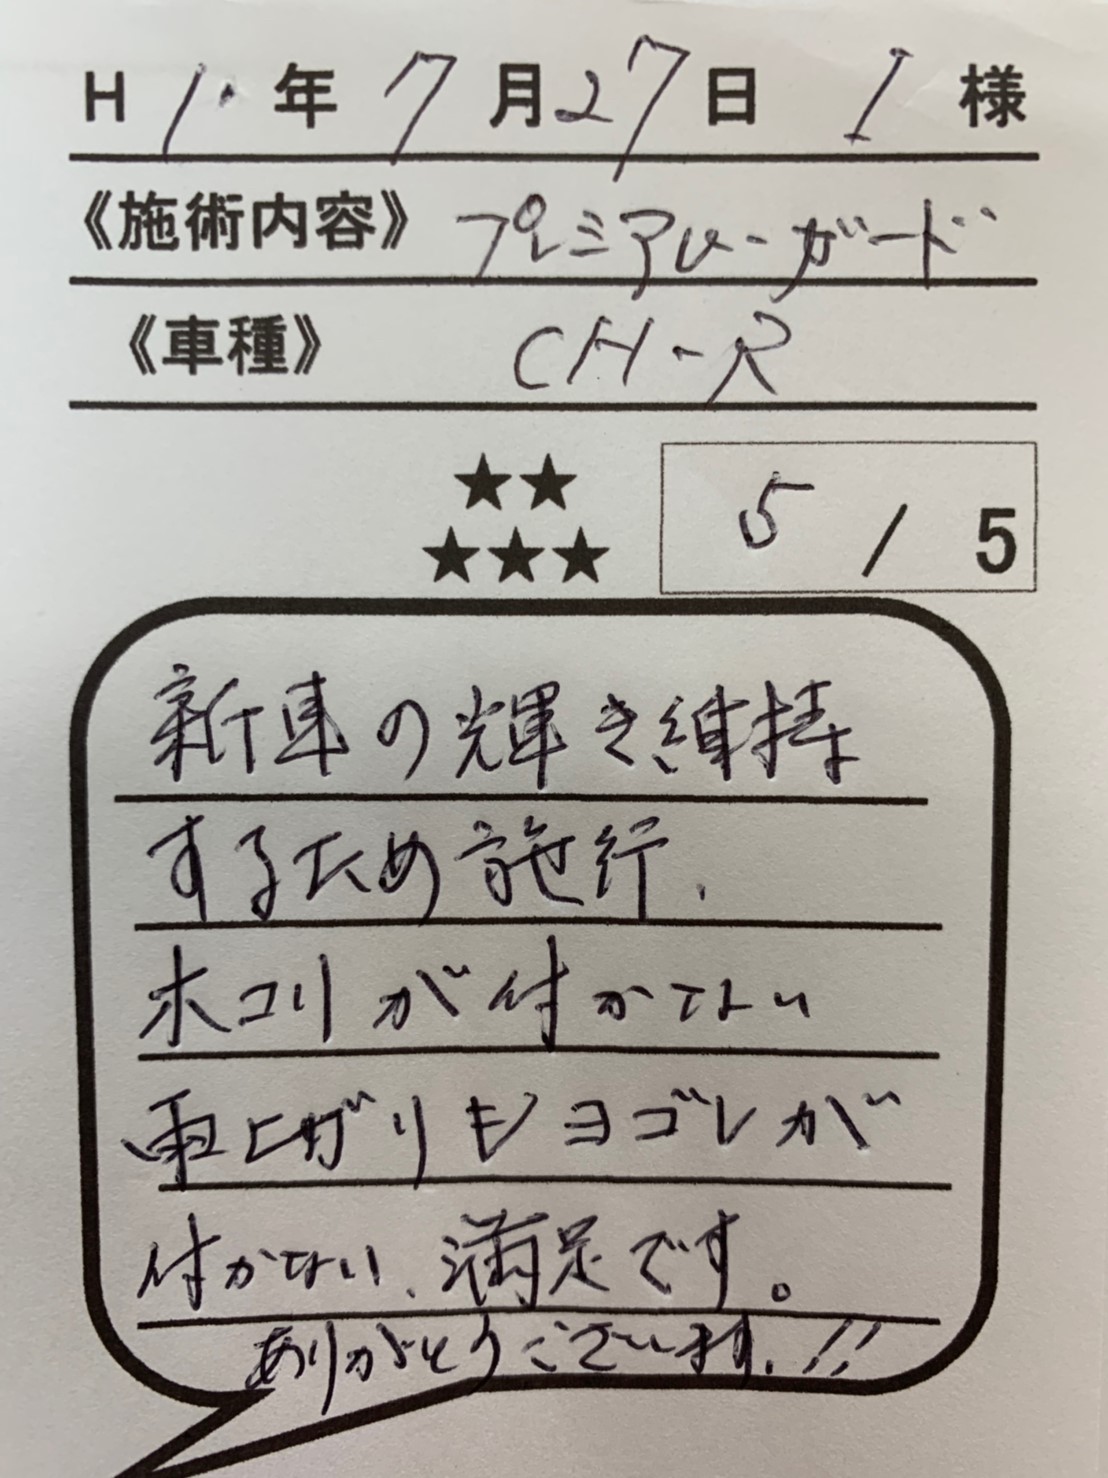 H 1. 年 7 月 27 日 I 様
《施術内容》 プレミアムーガード
《車種》 CH-R
★★
★★★
5 / 5
新車の輝き維持
するため施行、
ホコリが付かない
雨上がりもヨゴレが
付かない、満足です。
ありがとうございます.!!